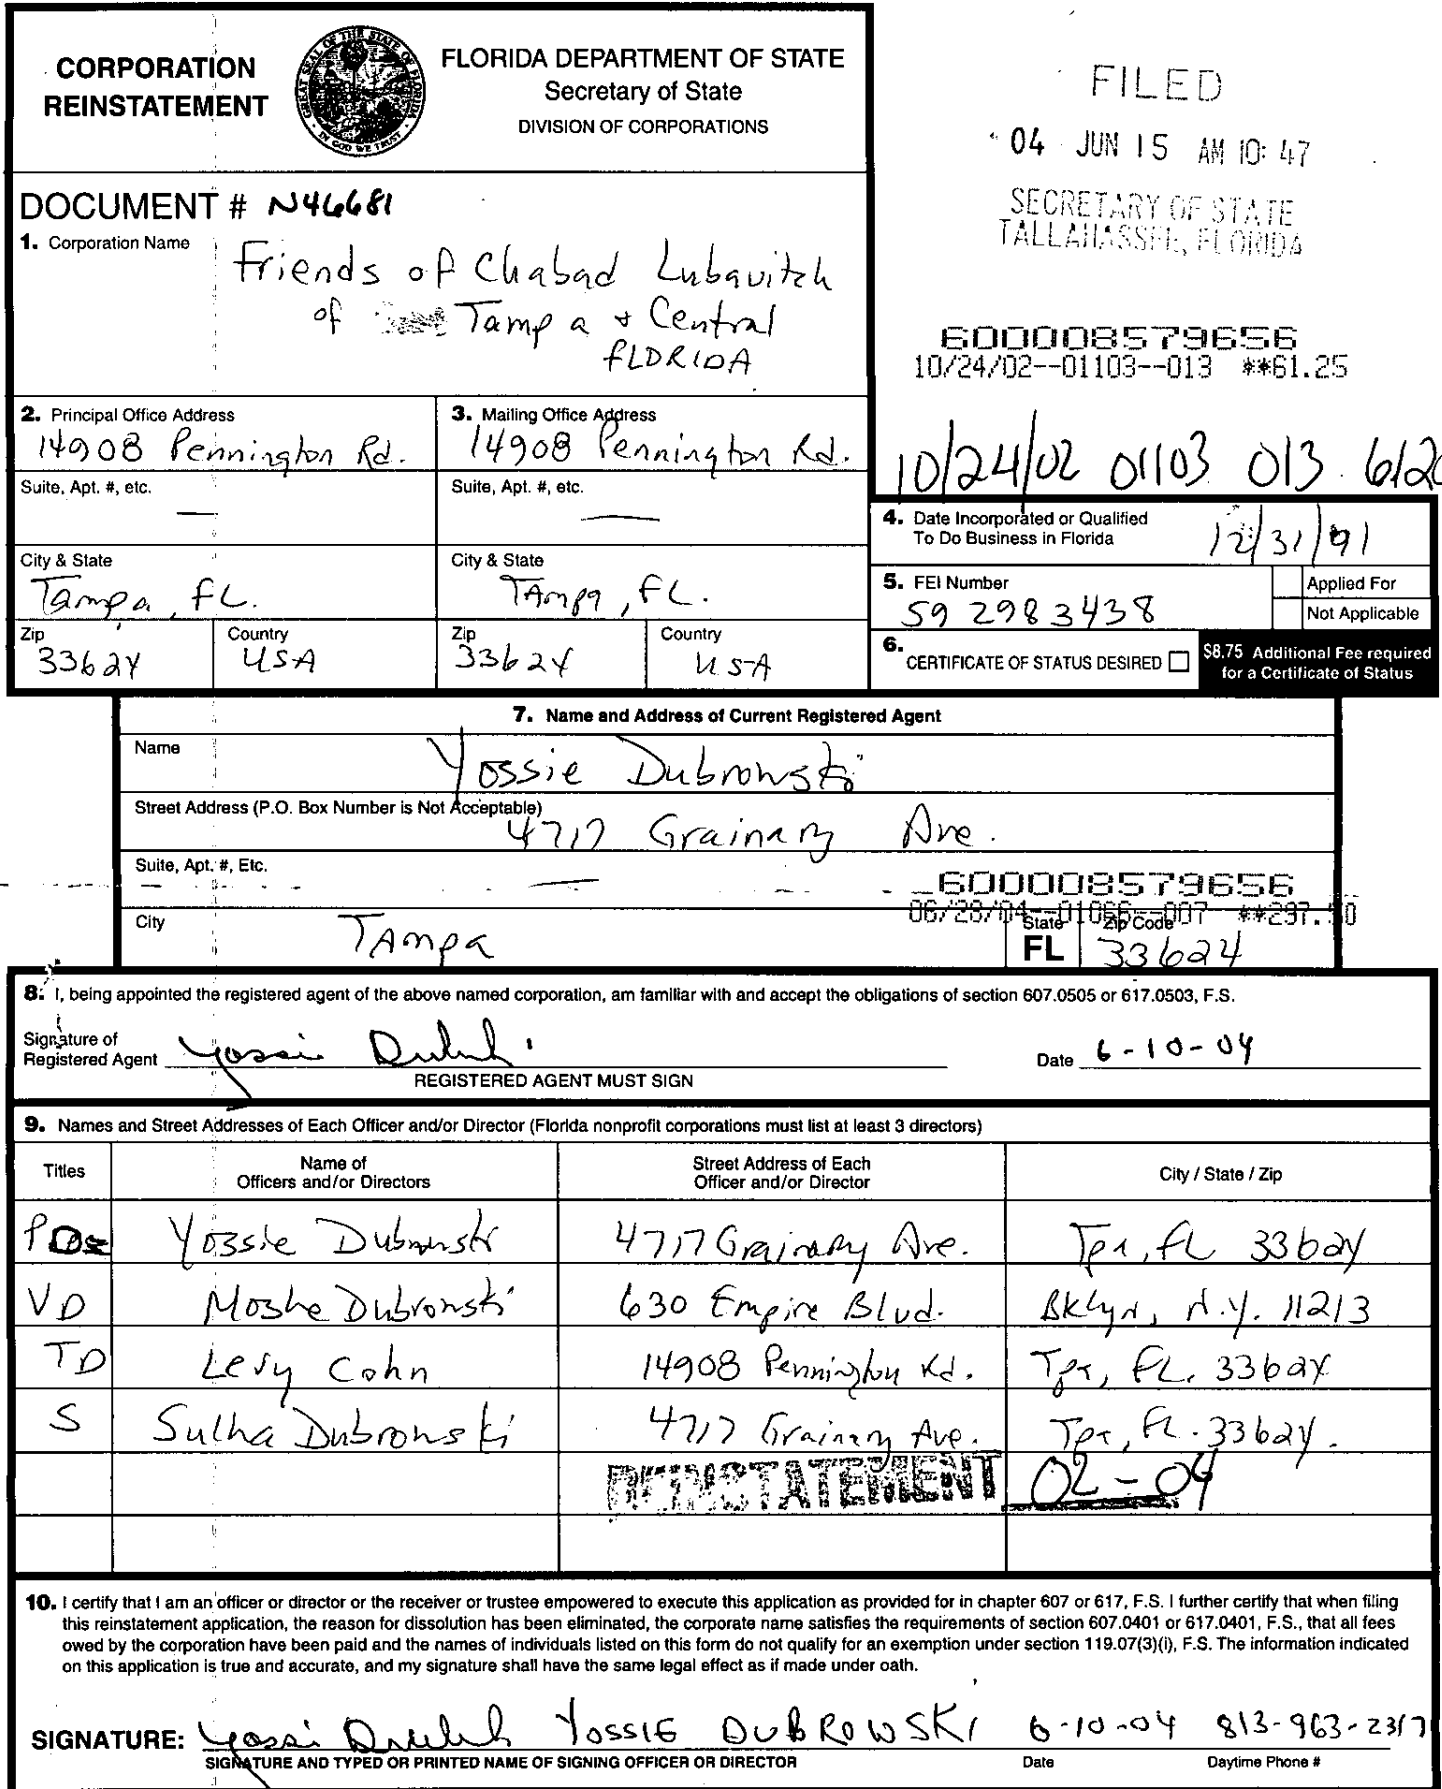 CORPORATION
REINSTATEMENT
FLORIDA DEPARTMENT OF STATE
Secretary of State
DIVISION OF CORPORATIONS
GREAT SEAL OF THE STATE OF FLORIDA
IN GOD WE TRUST
FILED
04 JUN 15 AM 10:47
SECRETARY OF STATE
TALLAHASSEE, FLORIDA
DOCUMENT # N46681
1. Corporation Name
Friends of Chabad Lubavitch
of Tampa & Central
FLORIDA
600008579656
10/24/02--01103--013 **61.25
10/24/02 01103 013
2. Principal Office Address
14908 Pennington Rd.
3. Mailing Office Address
14908 Pennington Rd.
Suite, Apt. #, etc.
—
Suite, Apt. #, etc.
—
4. Date Incorporated or Qualified
To Do Business in Florida
12/31/91
City & State
Tampa, FL.
City & State
TAmpa, FL.
5. FEI Number
59 2983438
Applied For
Not Applicable
Zip
33624
Country
USA
Zip
33624
Country
USA
6. CERTIFICATE OF STATUS DESIRED
$8.75 Additional Fee required
for a Certificate of Status
7. Name and Address of Current Registered Agent
Name
Yossie Dubrowski
Street Address (P.O. Box Number is Not Acceptable)
4717 Grainary Ave.
Suite, Apt. #, Etc.
—
600008579656
06/28/04--01066--007 **297.50
City
TAmpa
State
FL
Zip Code
33624
8. I, being appointed the registered agent of the above named corporation, am familiar with and accept the obligations of section 607.0505 or 617.0503, F.S.
Signature of
Registered Agent
REGISTERED AGENT MUST SIGN
Date 6-10-04
9. Names and Street Addresses of Each Officer and/or Director (Florida nonprofit corporations must list at least 3 directors)
Titles
Name of
Officers and/or Directors
Street Address of Each
Officer and/or Director
City / State / Zip
PD Yossie Dubrowski 4717 Grainary Ave. Tpa, FL 33624
VD Moshe Dubrowski 630 Empire Blvd. BKlyn, N.Y. 11213
TD Levy Cohn 14908 Pennington Rd. Tpa, FL. 33624
S Sulha Dubrowski 4717 Grainary Ave. Tpa, FL. 33624.
REINSTATEMENT 02-04
10. I certify that I am an officer or director or the receiver or trustee empowered to execute this application as provided for in chapter 607 or 617, F.S. I further certify that when filing
this reinstatement application, the reason for dissolution has been eliminated, the corporate name satisfies the requirements of section 607.0401 or 617.0401, F.S., that all fees
owed by the corporation have been paid and the names of individuals listed on this form do not qualify for an exemption under section 119.07(3)(i), F.S. The information indicated
on this application is true and accurate, and my signature shall have the same legal effect as if made under oath.
SIGNATURE: YOSSIE DUBROWSKI 6-10-04 813-963-2317
SIGNATURE AND TYPED OR PRINTED NAME OF SIGNING OFFICER OR DIRECTOR
Date
Daytime Phone #